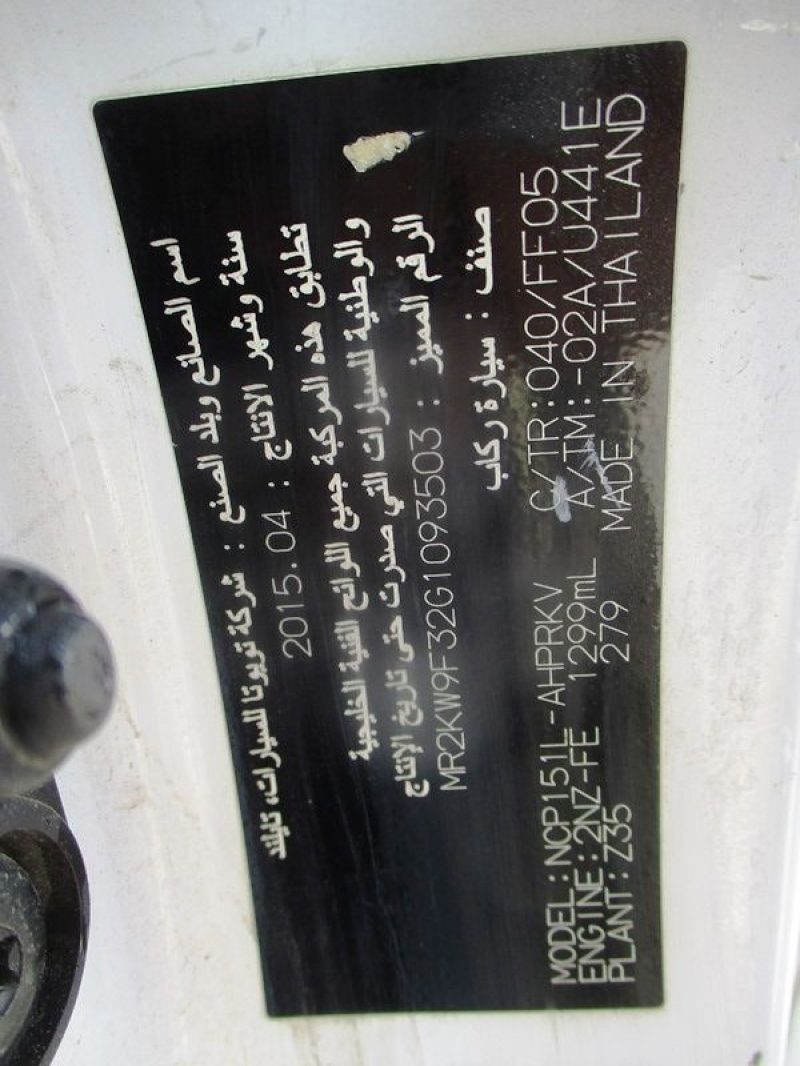 اسم الصانع وبلد الصنع : شركة تويوتا للسيارات، تايلند
سنة وشهر الانتاج : 2015.04
تطابق هذه المركبة جميع اللوائح الفنية الخليجية
والوطنية للسيارات التي صدرت حتى تاريخ الإنتاج
الرقم المميز : MR2KW9F32G1093503
صنف : سيارة ركاب
MODEL:NCP151L-AHPRKV C/TR:040/FF05
ENGINE:2NZ-FE 1299mL A/TM:-02A/U441E
PLANT:Z35 279 MADE IN THAILAND